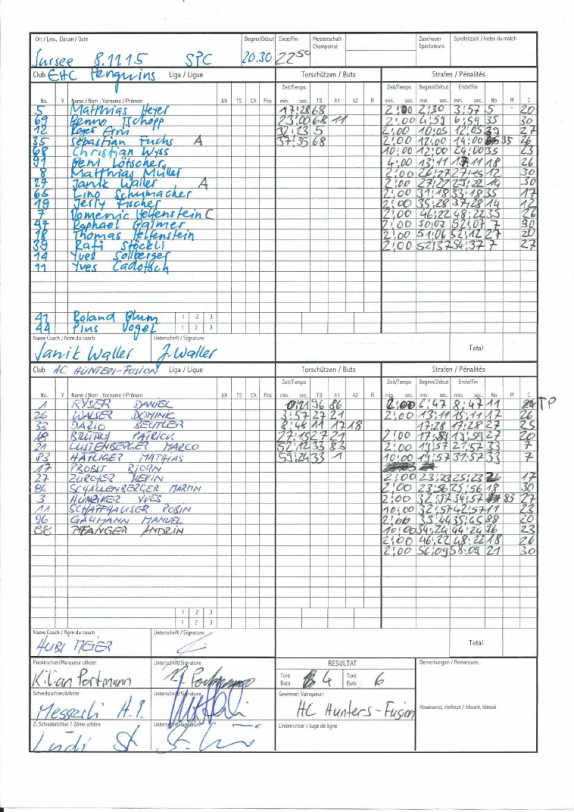 Ort / Lieu, Datum / Date Beginn/Début Ende/Fin Meisterschaft Championat Zuschauer Spectateurs Spielzahl / Index du match
Sursee 8.11.15 SPC 20.30 22 50
Club EHC Penguins Liga / Ligue Torschützen / Buts Strafen / Pénalités
Zeit/Temps Zeit/Temps Beginn/Début Ende/Fin
No. V Name / Nom, Vorname / Prénom J/A TS CA Pos min. sec. TB A1 A2 R min. sec. min. sec. min. sec. No M C
5 Matthias Heyer 17:28 68 2:00 2:30 3:57 5 20
69 Benno Tschopp 23:00 68 11 2:00 4:59 6:59 35 30
12 Roger Erni 32:23 5 2:00 10:05 12:05 39 27
35 Sebastian Fuchs A 37:35 68 2:00 12:00 14:00 35 26
68 Christian Wyss 10:00 12:00 24:00 35 23
91 Beni Lötscher 4:00 13:11 17:11 18 26
8 Matthias Müller 30
27 Janik Waller A
66 Lino Schumacher 2:00 31:18 33:18 35 17
19 Jerry Fischer 2:00 35:28 37:28 14 12
7 Domenic Helfenstein C 2:00 46:22 48:22 35 26
47 Raphael Galmer 2:00 50:07 52:07 7 30
18 Thomas Helfenstein 2:00 51:06 27 20
39 Rafi Stöckli 2:00 52:37 54:37 7 27
14 Yves Sollberger
11 Yves Cadotsch
41 Roland Blum 1 2 3
44 Pius Vogel 1 2 3
Name Coach / Nom du coach Unterschrift / Signature
Janik Waller J. Waller Total
Club HC HUNTERS-FUSION Liga / Ligue Torschützen / Buts Strafen / Pénalités
Zeit/Temps Zeit/Temps Beginn/Début Ende/Fin
No. V Name / Nom, Vorname / Prénom J/A TS CA Pos min. sec. TB A1 A2 R min. sec. min. sec. min. sec. No M C
1 RYSER DANIEL 96 86 2:00 6:47 8:47 11 TP
26 WALSER DOMINIC 3:57 27 21 2:00 13:11 15:11 17 26
33 DARIO BEUTLER 8:44 11 17 18 17:28 17:28 27 25
18 PATRICK 27:15 27 21 2:00 17:59 19:59 27 20
21 LUSTENBERGER MARCO 33 83 2:00 19:57 21:57 33 7
83 HÄFLIGER MATHIAS 59:24 33 1 10:00 19:57 37:57 33 7
17 PROBST BJÖRN
27 ZÜRCHER KEVIN 2:00 23:23 25:23 17
86 SCHALLENBERGER MARTIN 2:00 18 30
3 HUNZIKER YVES 2:00 32:57 34:57 83 27
11 SCHAFFHAUSER ROBIN 10:00 32:57 42:57 11 23
96 GAUMANN MANUEL 2:00 33:44 35:44 88 20
88 PFANGER ANDRIN 10:00 34:24 44:24 96 23
2:00 46:22 48:22 18 26
2:00 56:09 58:09 21 30
1 2 3
1 2 3
Name Coach / Nom du coach Unterschrift / Signature
HUBI MEIER Total
Punktrichter/Marqueur officiel Unterschrift/Signature RESULTAT Bemerkungen / Remarques
Kilian Portmann Tore Buts 4 Tore Buts 6
Schiedsrichter/Arbitre Unterschrift/Signature Gewinner/Vainqueur:
Messerli A.P. HC Hunters-Fusion Abwesend, Verletzt / Absent, blessé
2. Schiedsrichter / 2ème arbitre Unterschrift/Signature Linienrichter / Juge de ligne
Lüdi St